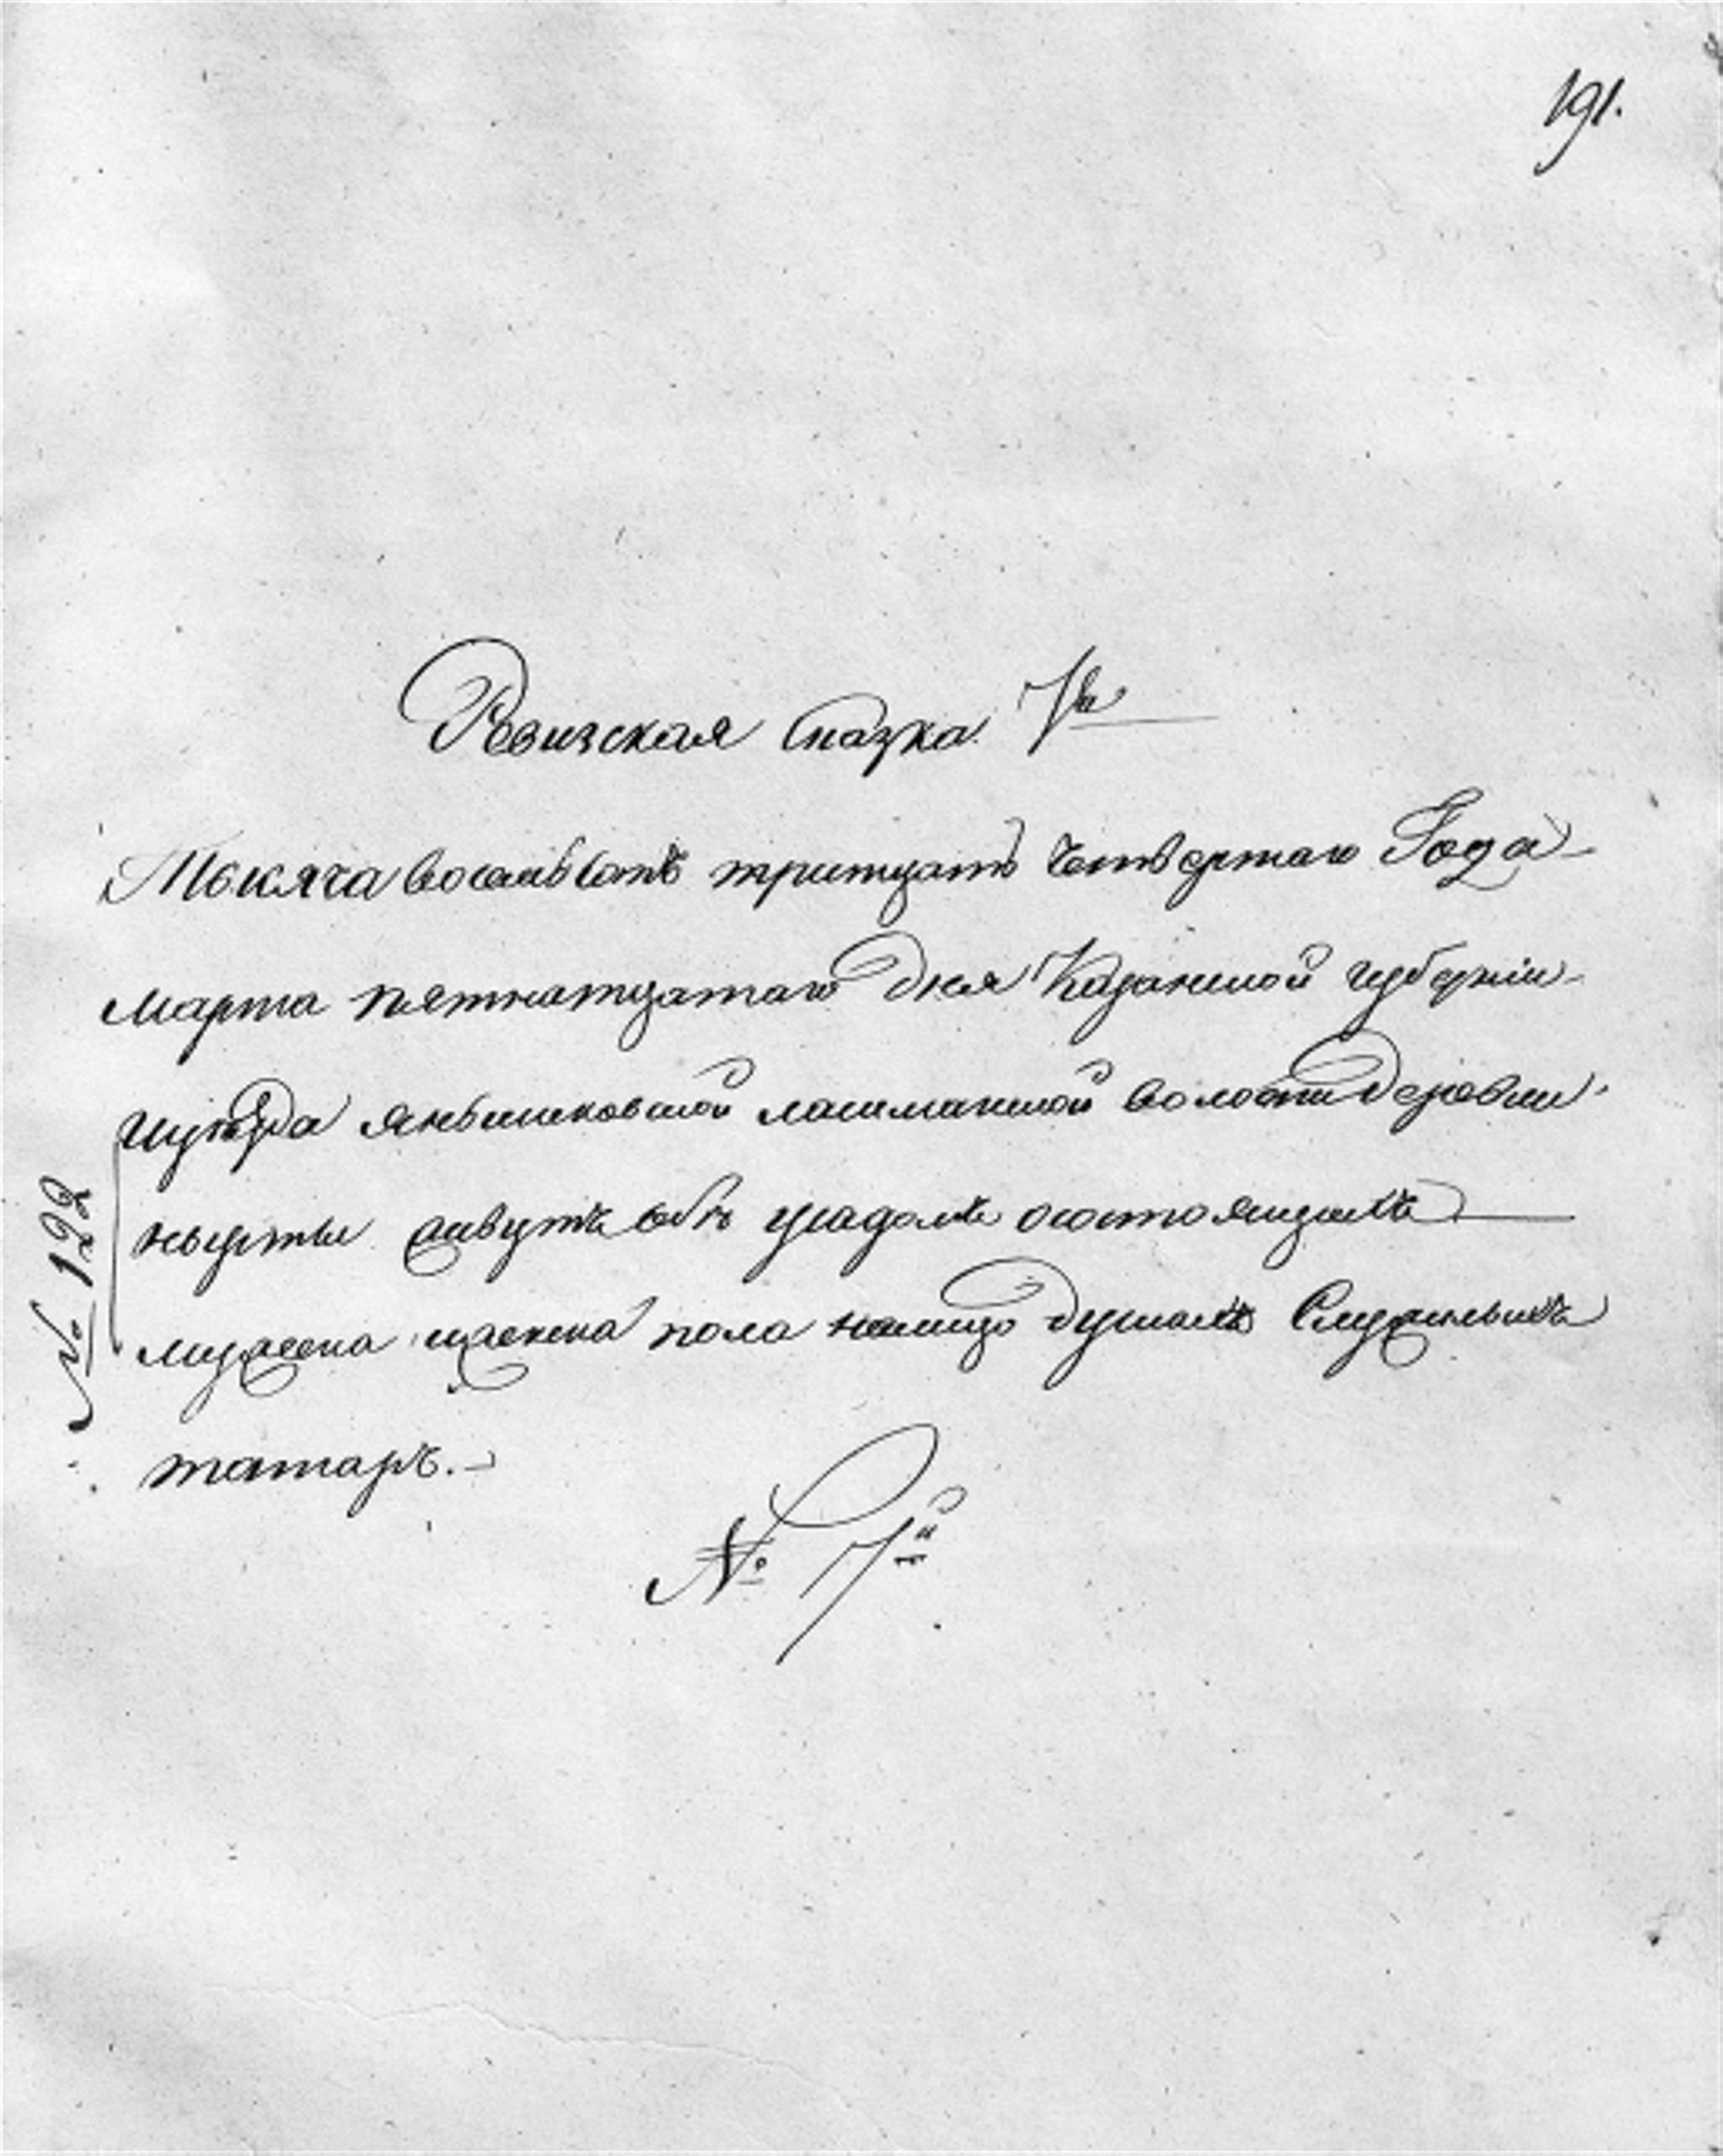 191.
Ревизская Сказка 7я
Тысяча восемьсотъ тритцать Четвертаго Года
Марта пятнатцатаго дня Казанской губернии
уезда лашманской волости деревни
состоящихъ
мужеска и женска пола налицо душахъ Служилыхъ
татаръ.
№ 7й
№ 122